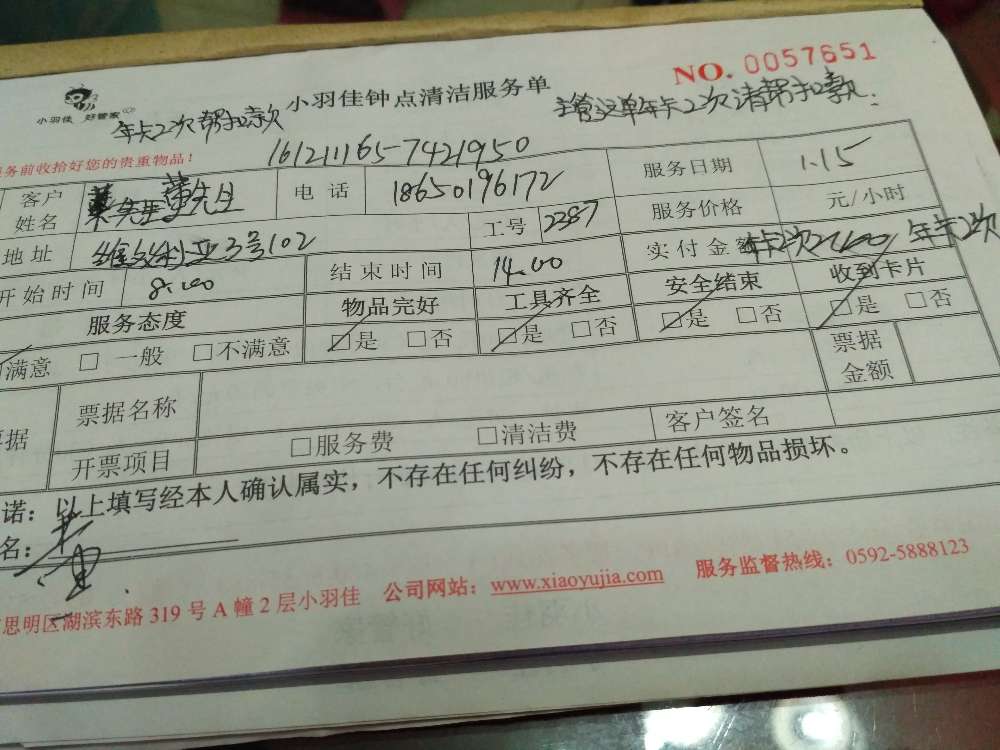 NO. 0057651
小羽佳 好管家
小羽佳钟点清洁服务单
年卡2次帮扣款
主管这单年卡2次请帮扣款.
服务前收拾好您的贵重物品!
161211165-7421950
客户姓名 董先生 电话 18650196172 服务日期 1.15
地址 维多利亚3号102 工号 2287 服务价格 元/小时
开始时间 8:00 结束时间 14:00 实付金额 年卡2次 年卡2次
服务态度 物品完好 工具齐全 安全结束 收到卡片
满意 □ 一般 □不满意 □是 □否 □是 □否 □是 □否 □是 □否
票据名称 票据金额
据 开票项目 □服务费 □清洁费 客户签名
诺:以上填写经本人确认属实,不存在任何纠纷,不存在任何物品损坏。
名:
思明区湖滨东路319号A幢2层小羽佳 公司网站:www.xiaoyujia.com 服务监督热线:0592-5888123